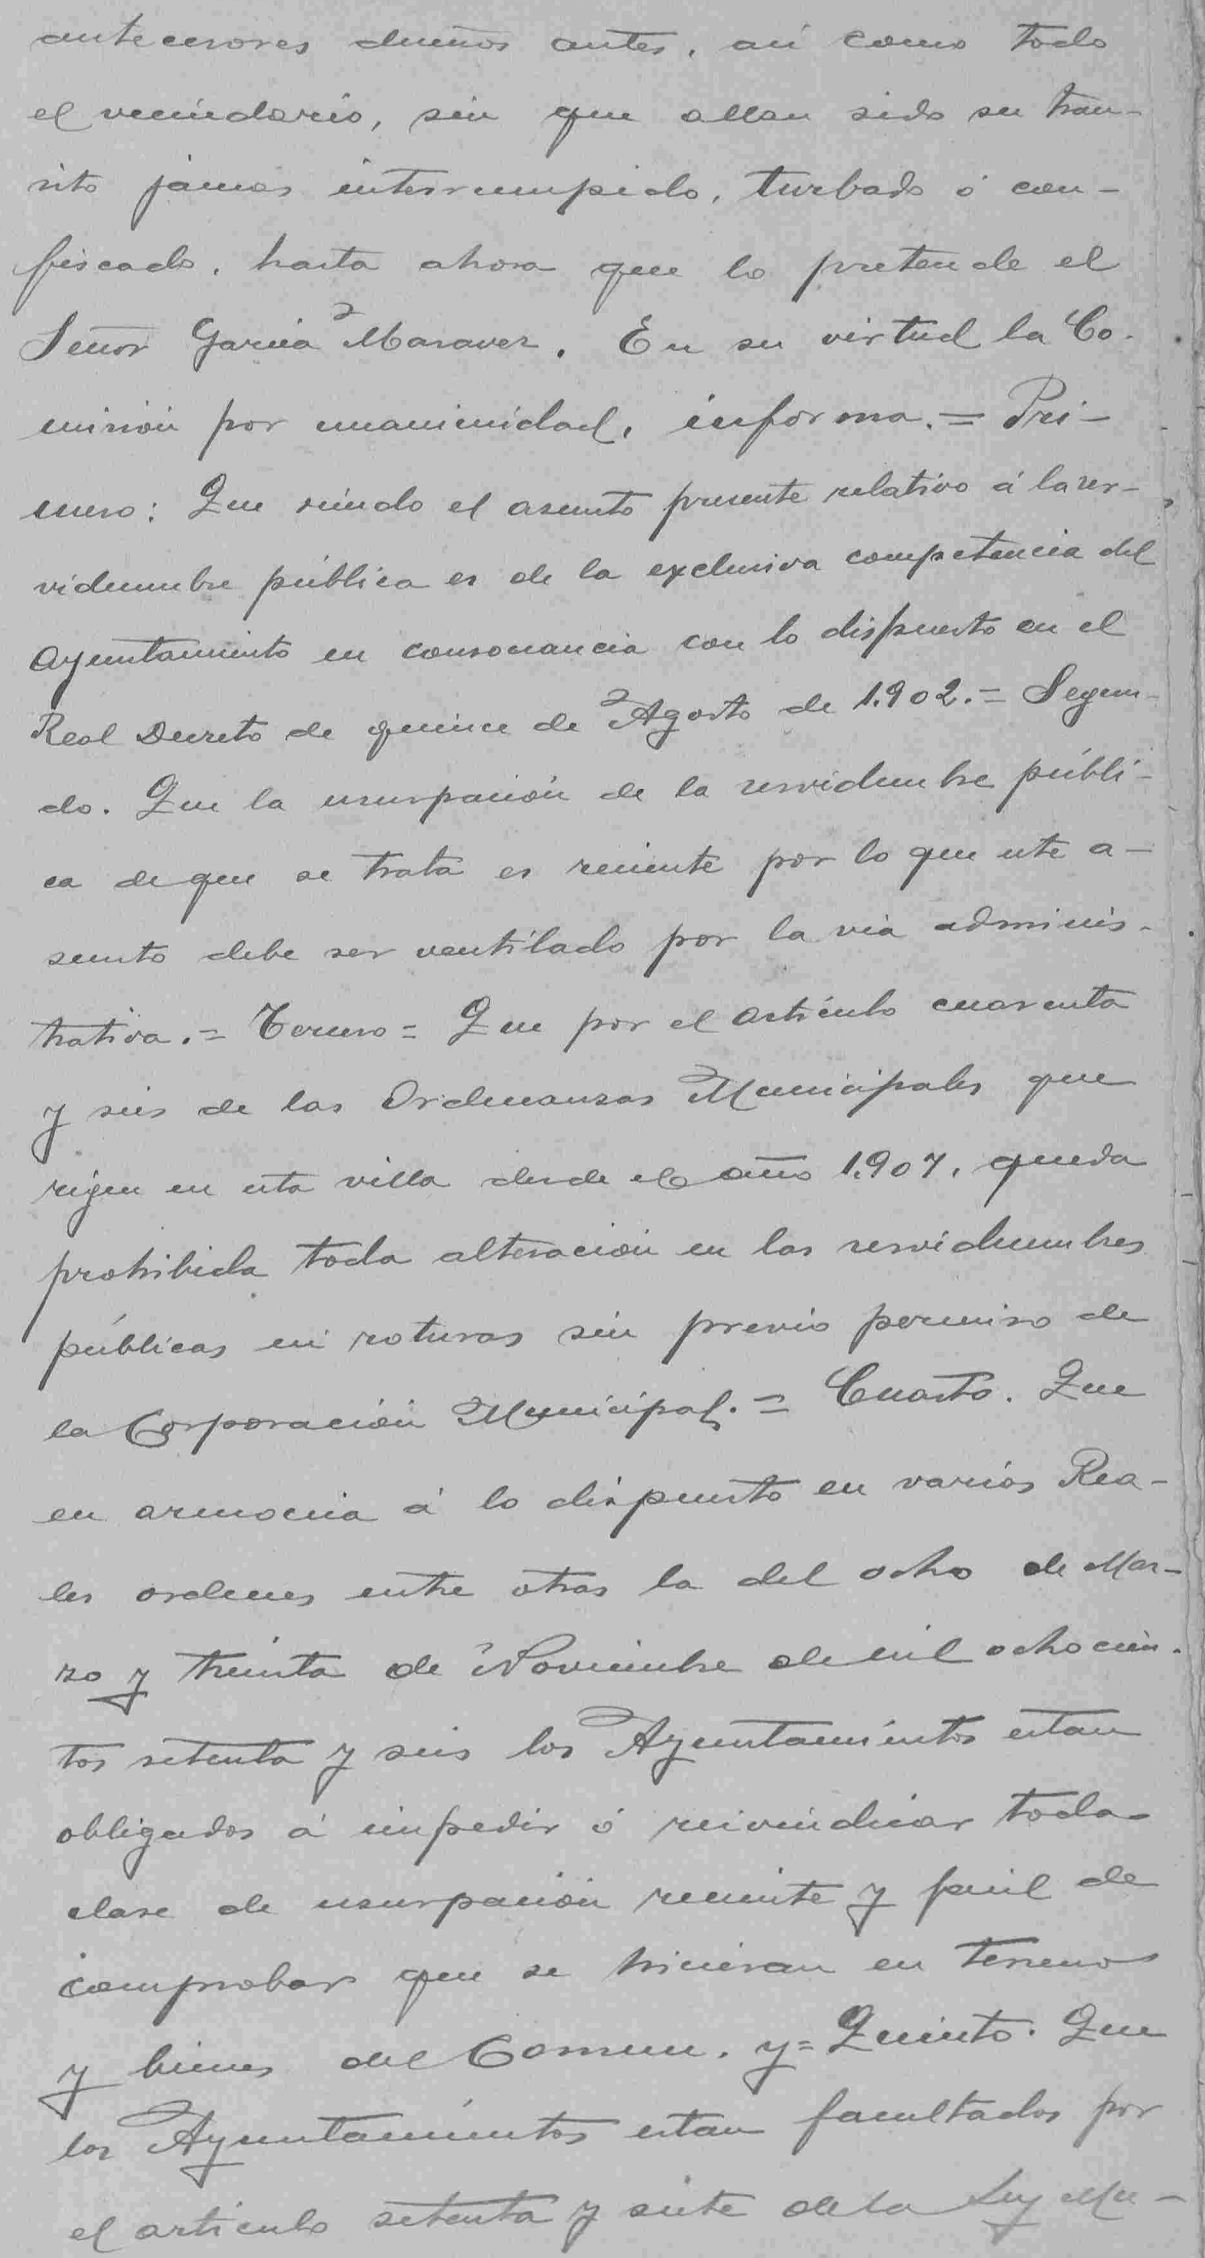 antecesores dueños antes, asi como todo
el vecindario, sin que allan sido su tran-
sito jamas interrumpido, turbado ó con-
fiscado, hasta ahora que lo pretende el
Señor Garcia Maraver. En su virtud la Co-
misión por unanimidad, informa.= Pri-
mero: Que siendo el asunto presente relativo á la ser-
vidumbre pública es de la exclusiva competencia del
Ayuntamiento en consonancia con lo dispuesto en el
Real Decreto de quince de Agosto de 1.902.= Segun-
do. Que la usurpación de la servidumbre públi-
ca de que se trata es reciente por lo que este a-
sunto debe ser ventilado por la via adminis-
trativa.= Tercero= Que por el artículo cuarenta
y seis de las Ordenanzas Municipales que
rigen en esta villa desde el año 1.907, queda
prohibida toda alteración en las servidumbres
públicas ni roturas sin previo permiso de
la Corporación Municipal.= Cuarto. Que
en armonia á lo dispuesto en varios Rea-
les ordenes entre otras la del ocho de Mar-
zo y treinta de Noviembre de mil ochocien-
tos setenta y seis los Ayuntamientos estan
obligados á impedir ó reivindicar toda
clase de usurpación reciente y facil de
comprobar que se hicieran en terrenos
y bienes del Comun. y= Quinto. Que
los Ayuntamientos estan facultados por
el artículo setenta y siete de la Ley Mu-